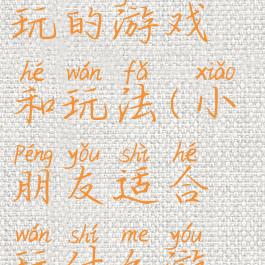 玩的游戏
hé wán fǎ xiǎo
和玩法(小
péng yǒu shì hé
朋友适合
wán shí me yóu